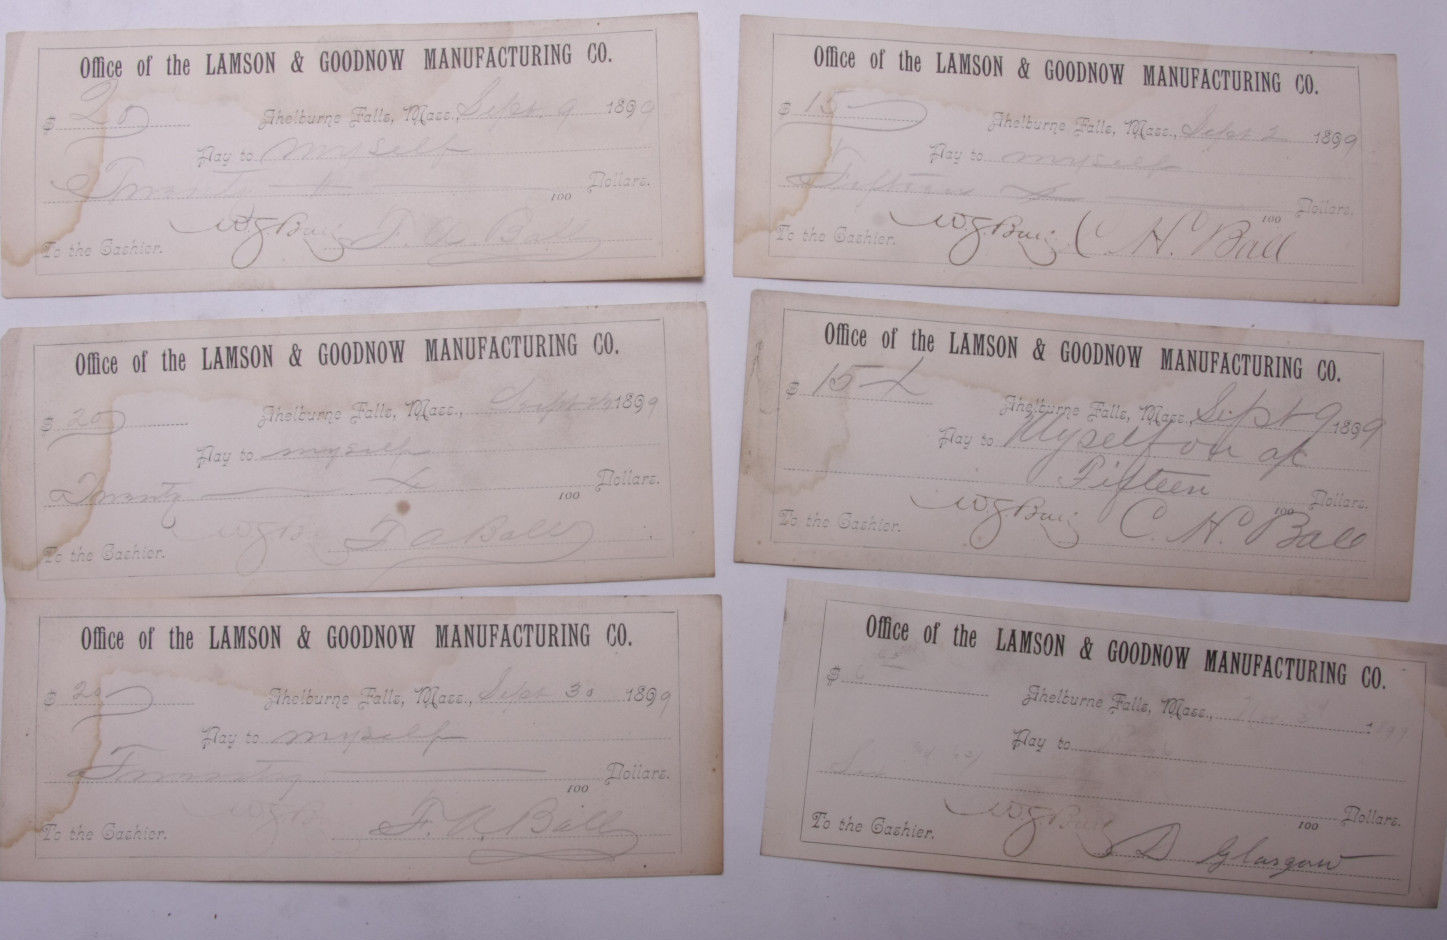 Office of the LAMSON & GOODNOW MANUFACTURING CO.
$ 20 Shelburne Falls, Mass., Sept. 9 1899
Pay to myself
Twenty 100 Dollars.
To the Cashier. W.G. F. A. Ball
Office of the LAMSON & GOODNOW MANUFACTURING CO.
$ 20 Shelburne Falls, Mass., Sept 1899
Pay to myself
Twenty 100 Dollars.
To the Cashier. W.G. F A Ball
Office of the LAMSON & GOODNOW MANUFACTURING CO.
$ 20 Shelburne Falls, Mass., Sept 30 1899
Pay to myself
Twenty 100 Dollars.
To the Cashier. W.G. F. A. Ball
Office of the LAMSON & GOODNOW MANUFACTURING CO.
$ 15 Shelburne Falls, Mass., Sept 2 1899
Pay to myself
Fifteen 100 Dollars.
To the Cashier. W.G. C. H. Ball
Office of the LAMSON & GOODNOW MANUFACTURING CO.
$ 15 Shelburne Falls, Mass., Sept 9 1899
Pay to Myself on a/c
Fifteen 100 Dollars.
To the Cashier. W.G. C. H. Ball
Office of the LAMSON & GOODNOW MANUFACTURING CO.
$ 6 Shelburne Falls, Mass., 1899
Pay to
100 Dollars.
To the Cashier. W.G. D Glasgow